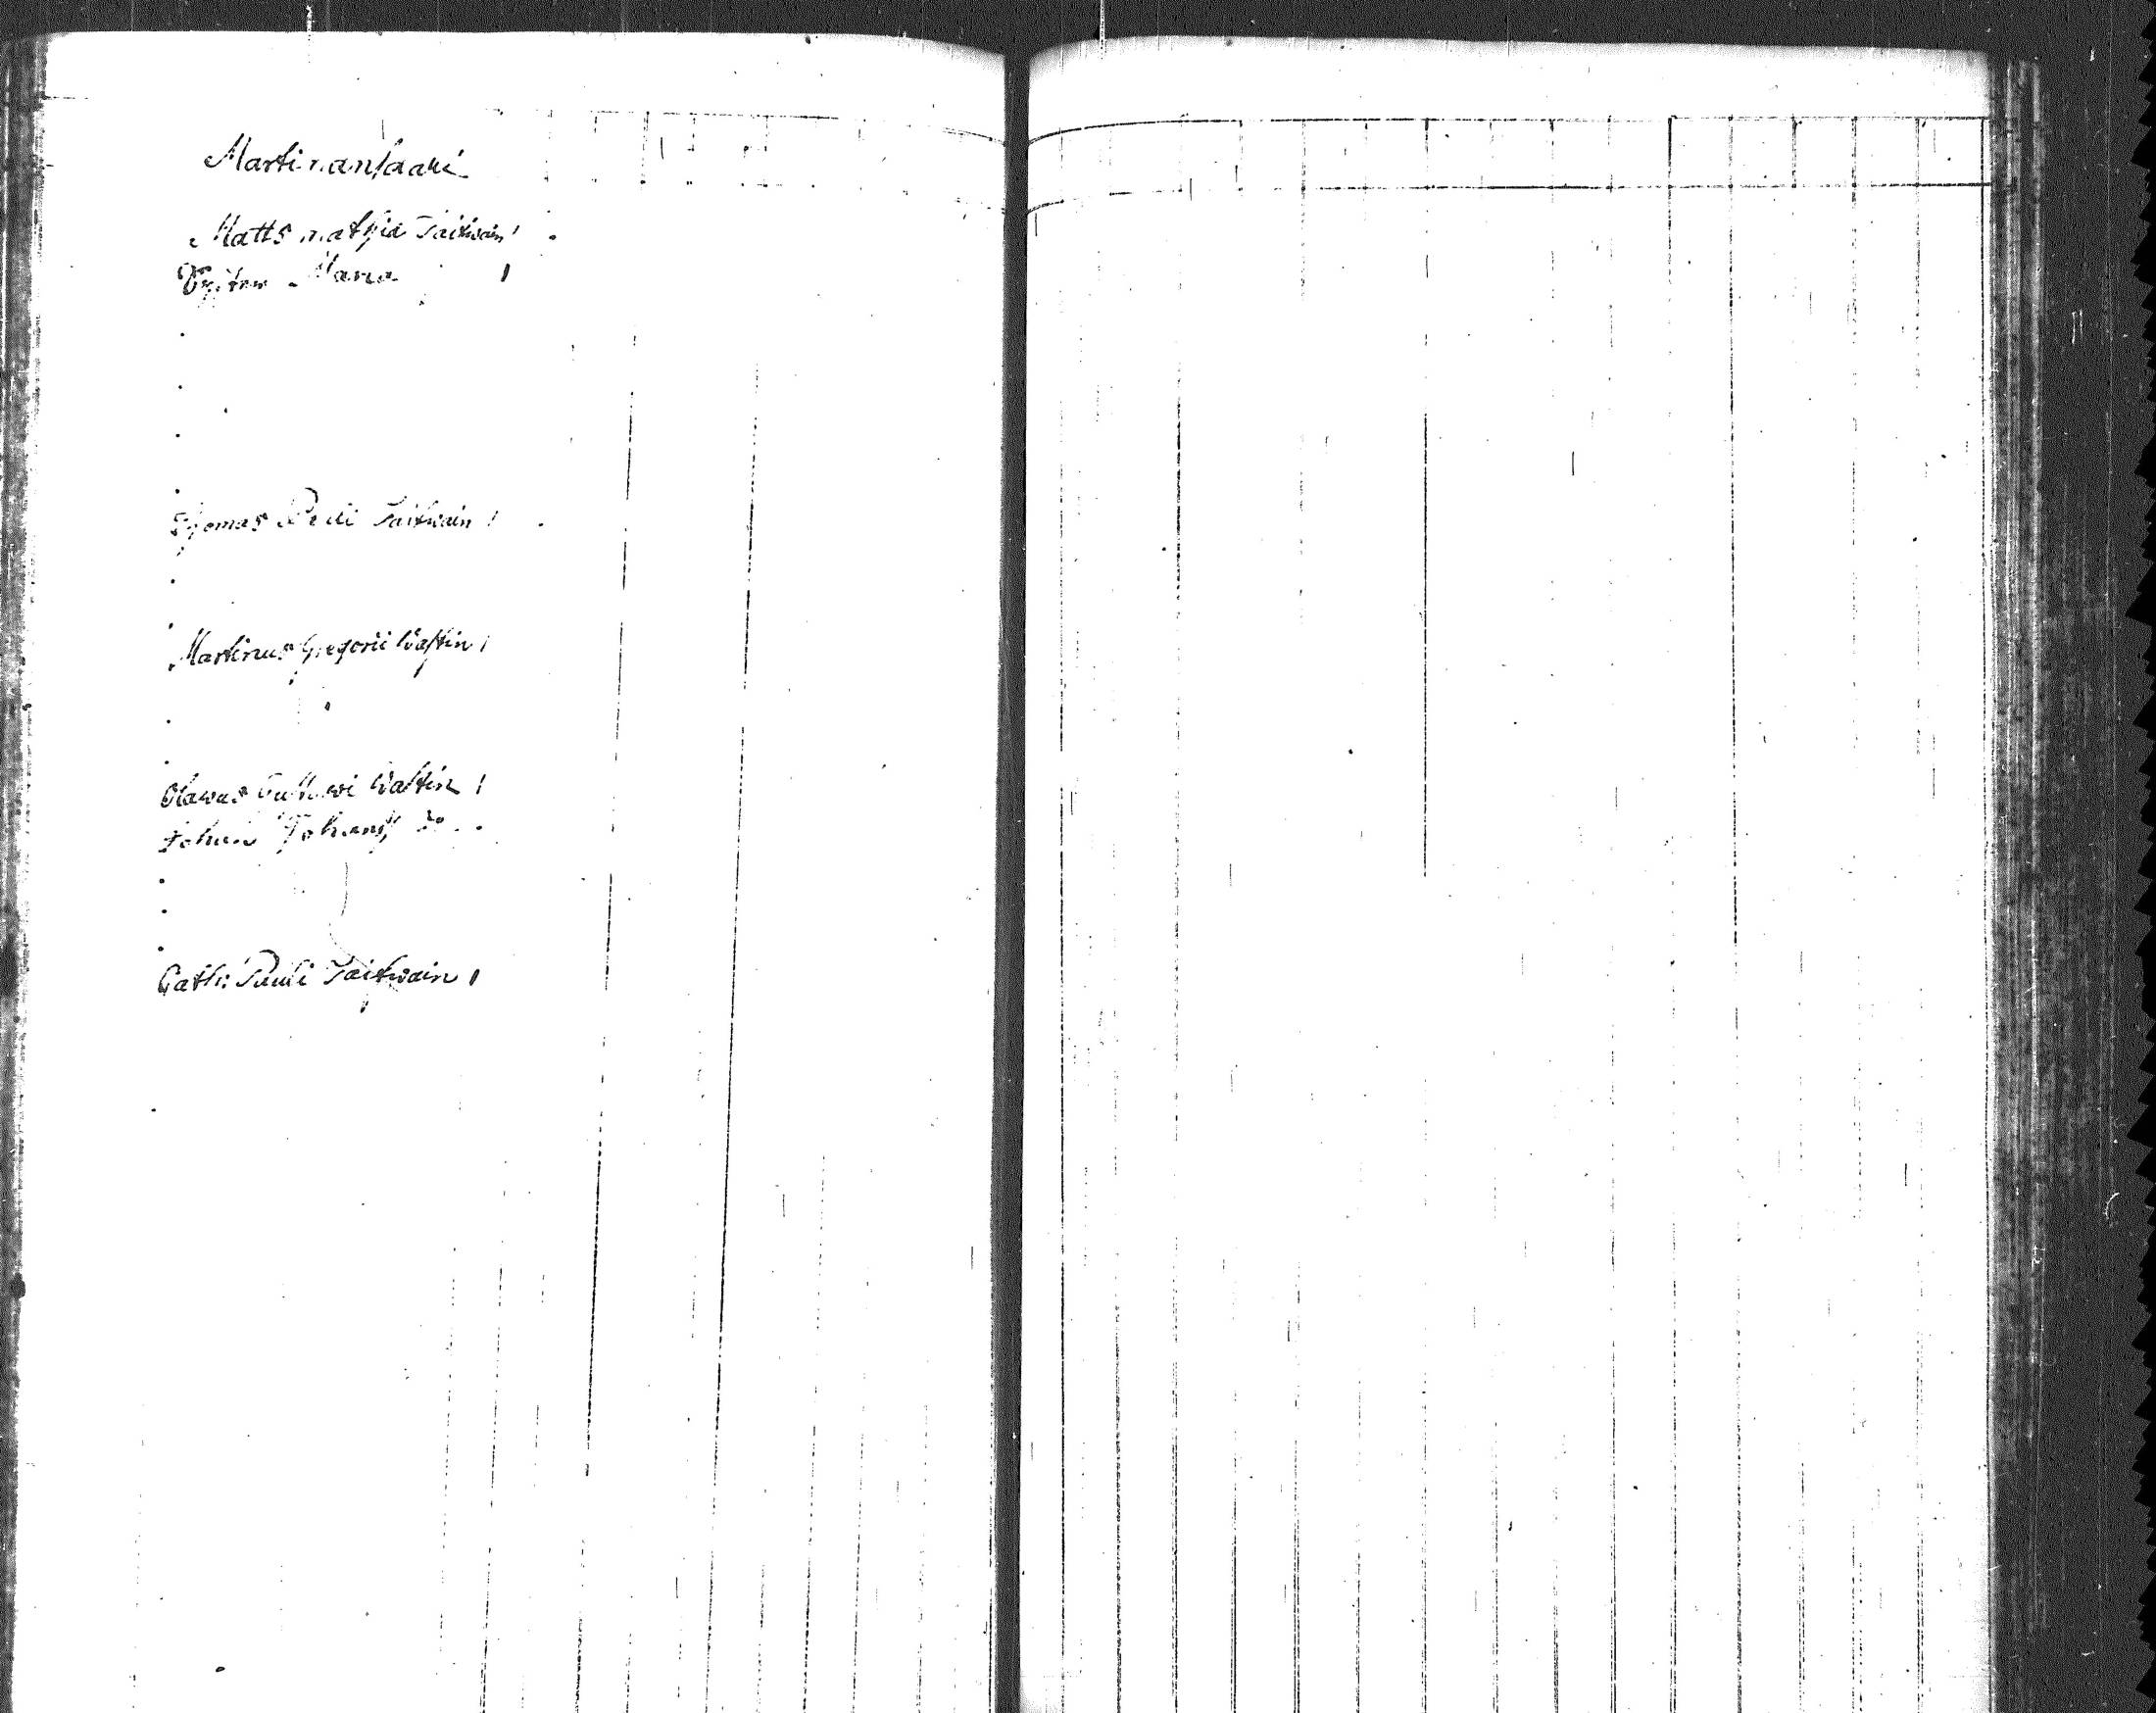 Martinansaari
Matts Mathiæ Taitwain 1
Maria 1
Thomas Pauli Taitwain 1
Martinus Gregorii Wastin 1
Olawus Gustawi Wastin 1
Johan Johanss do
Cath: Pauli Taitwain 1